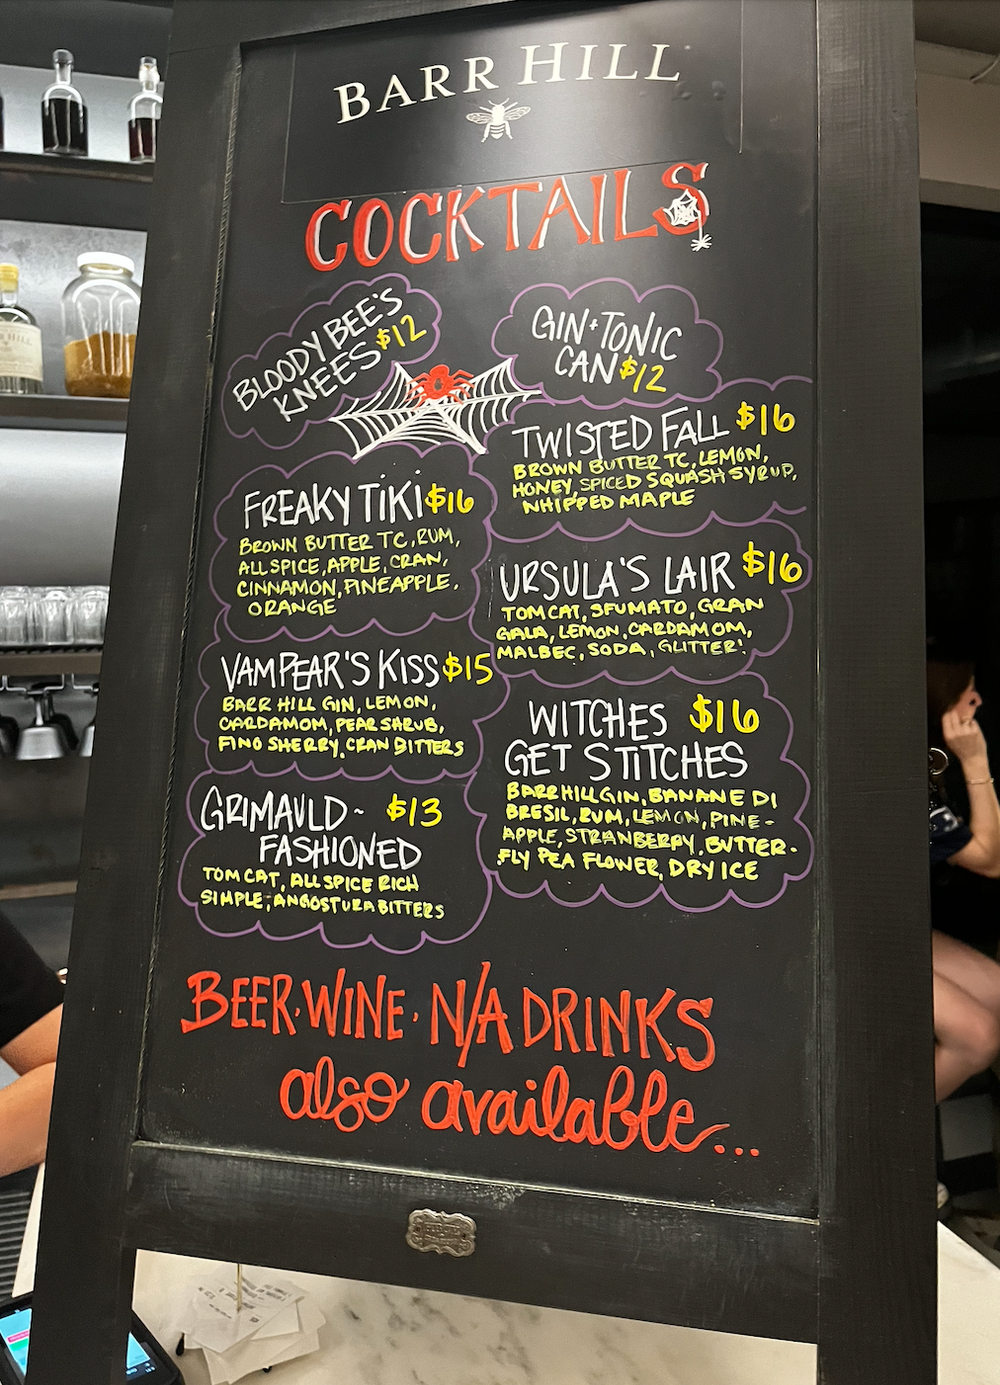 BARR HILL
COCKTAILS
BLOODY BEE'S
KNEES $12
GIN + TONIC
CAN $12
FREAKY TIKI $16
BROWN BUTTER TC, RUM,
ALLSPICE, APPLE, CRAN,
CINNAMON, PINEAPPLE,
ORANGE
VAMPEAR'S KISS $15
BARR HILL GIN, LEMON,
CARDAMOM, PEAR SHRUB,
FINO SHERRY, CRAN BITTERS
GRIMAULD~ $13
FASHIONED
TOM CAT, ALLSPICE RICH
SIMPLE, ANGOSTURA BITTERS
TWISTED FALL $16
BROWN BUTTER TC, LEMON,
HONEY, SPICED SQUASH SYRUP,
WHIPPED MAPLE
URSULA'S LAIR $16
TOMCAT, SFUMATO, GRAN
GALA, LEMON, CARDAMOM,
MALBEC, SODA, GLITTER!
WITCHES $16
GET STITCHES
BARR HILL GIN, BANANE DI
BRESIL, RUM, LEMON, PINE-
APPLE, STRANBERRY, BUTTER-
FLY PEA FLOWER, DRY ICE
BEER · WINE · N/A DRINKS
also available...